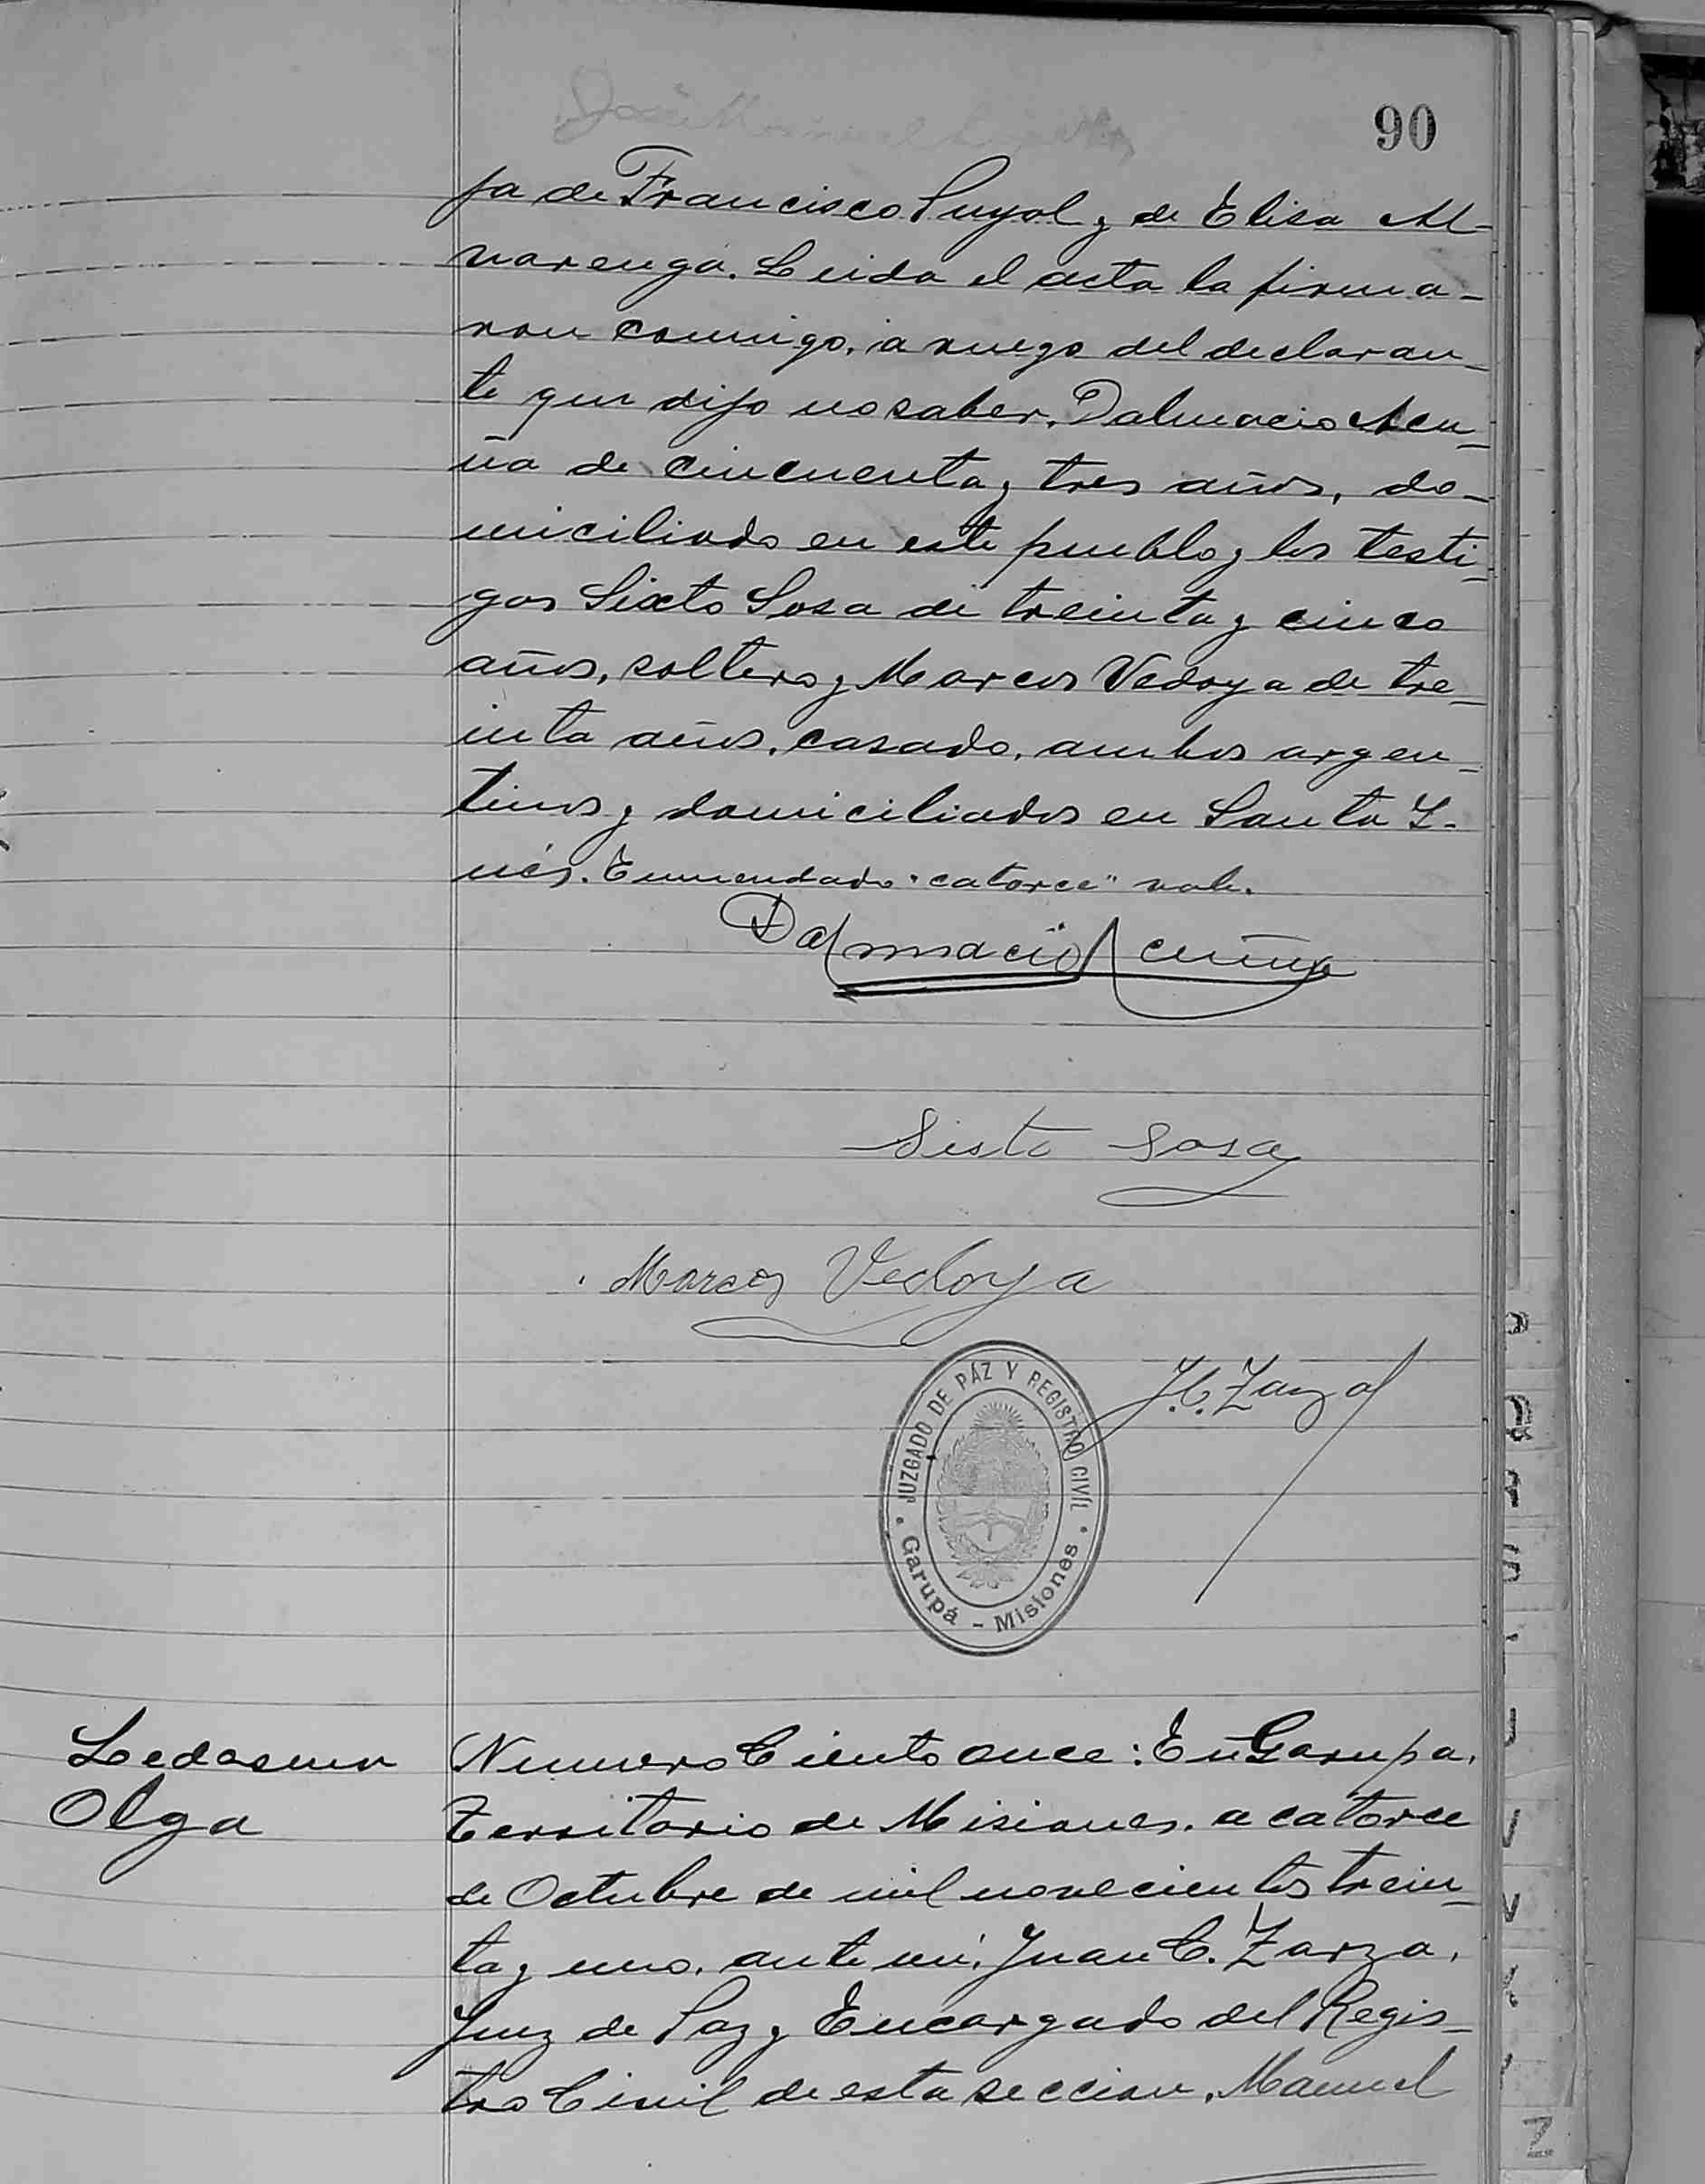 90
ja de Francisco Puyol y de Elisa Al-
varenga. Leida el acta la firma-
ron conmigo, a ruego del declaran-
te que dijo no saber, Dalmacio Acu-
ña de cincuenta y tres años, do-
miciliado en este pueblo y los testi-
gos Sixto Sosa de treinta y cinco
años, soltero y Marcos Vedoya de tre-
inta años, casado, ambos argen-
tinos y domiciliados en Santa I-
nés. Enmendado "catorce" vale.
Dalmacio Acuña
Sisto Sosa
Marcos Vedoya
J. C. Zarza
JUZGADO DE PÁZ Y REGISTRO CIVIL
Garupá - Misiones
Ledesma
Olga
Numero Ciento once: En Garupa,
Territorio de Misiones, a catorce
de Octubre de mil novecientos trein-
ta y uno, ante mi, Juan C. Zarza,
Juez de Paz y Encargado del Regis-
tro Civil de esta seccion, Manuel